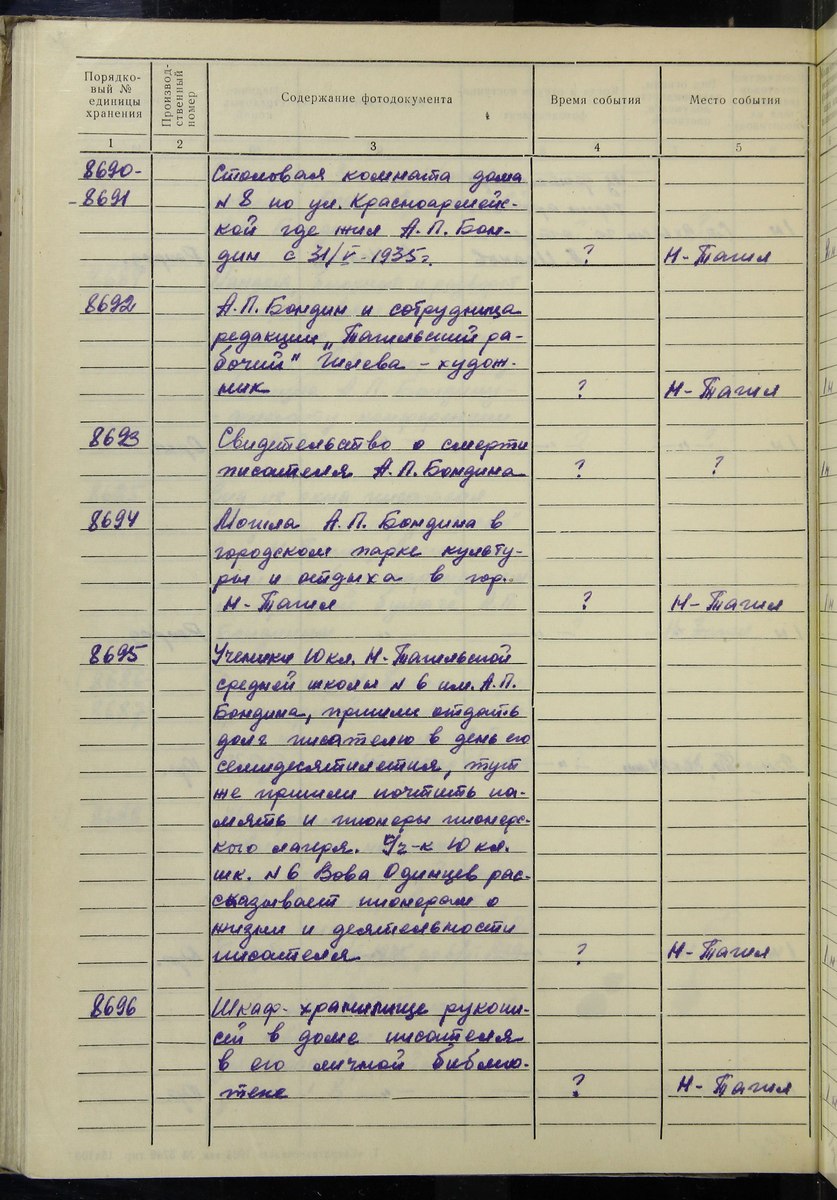 Порядко-
вый №
единицы
хранения
Производ-
ственный
номер
Содержание фотодокумента
Время события
Место события
1 2 3 4 5
8690- Столовая комната дома
-8691 N 8 по ул. Красноармейс-
кой где жил А.П. Бон-
дин с 31/V-1935г. ? Н-Тагил
8692 А.П. Бондин и сотрудница
редакции „Тагильский ра-
бочий" Гилева - худож-
ник ? Н-Тагил
8693 Свидетельство о смерти
писателя А.П. Бондина ? ?
8694 Могила А.П. Бондина в
городском парке культу-
ры и отдыха в гор.
Н-Тагил ? Н-Тагил
8695 Ученики 10 кл. Н-Тагильской
средней школы N 6 им. А.П.
Бондина, пришли отдать
долг писателю в день его
семидесятилетия, тут
же пришли почтить па-
мять и пионеры пионерс-
кого лагеря. Уч-к 10 кл.
шк. N 6 Вова Одинцев рас-
сказывает пионерам о
жизни и деятельности
писателя ? Н-Тагил
8696 Шкаф-хранилище рукопи-
сей в доме писателя
в его личной библио-
теке ? Н-Тагил